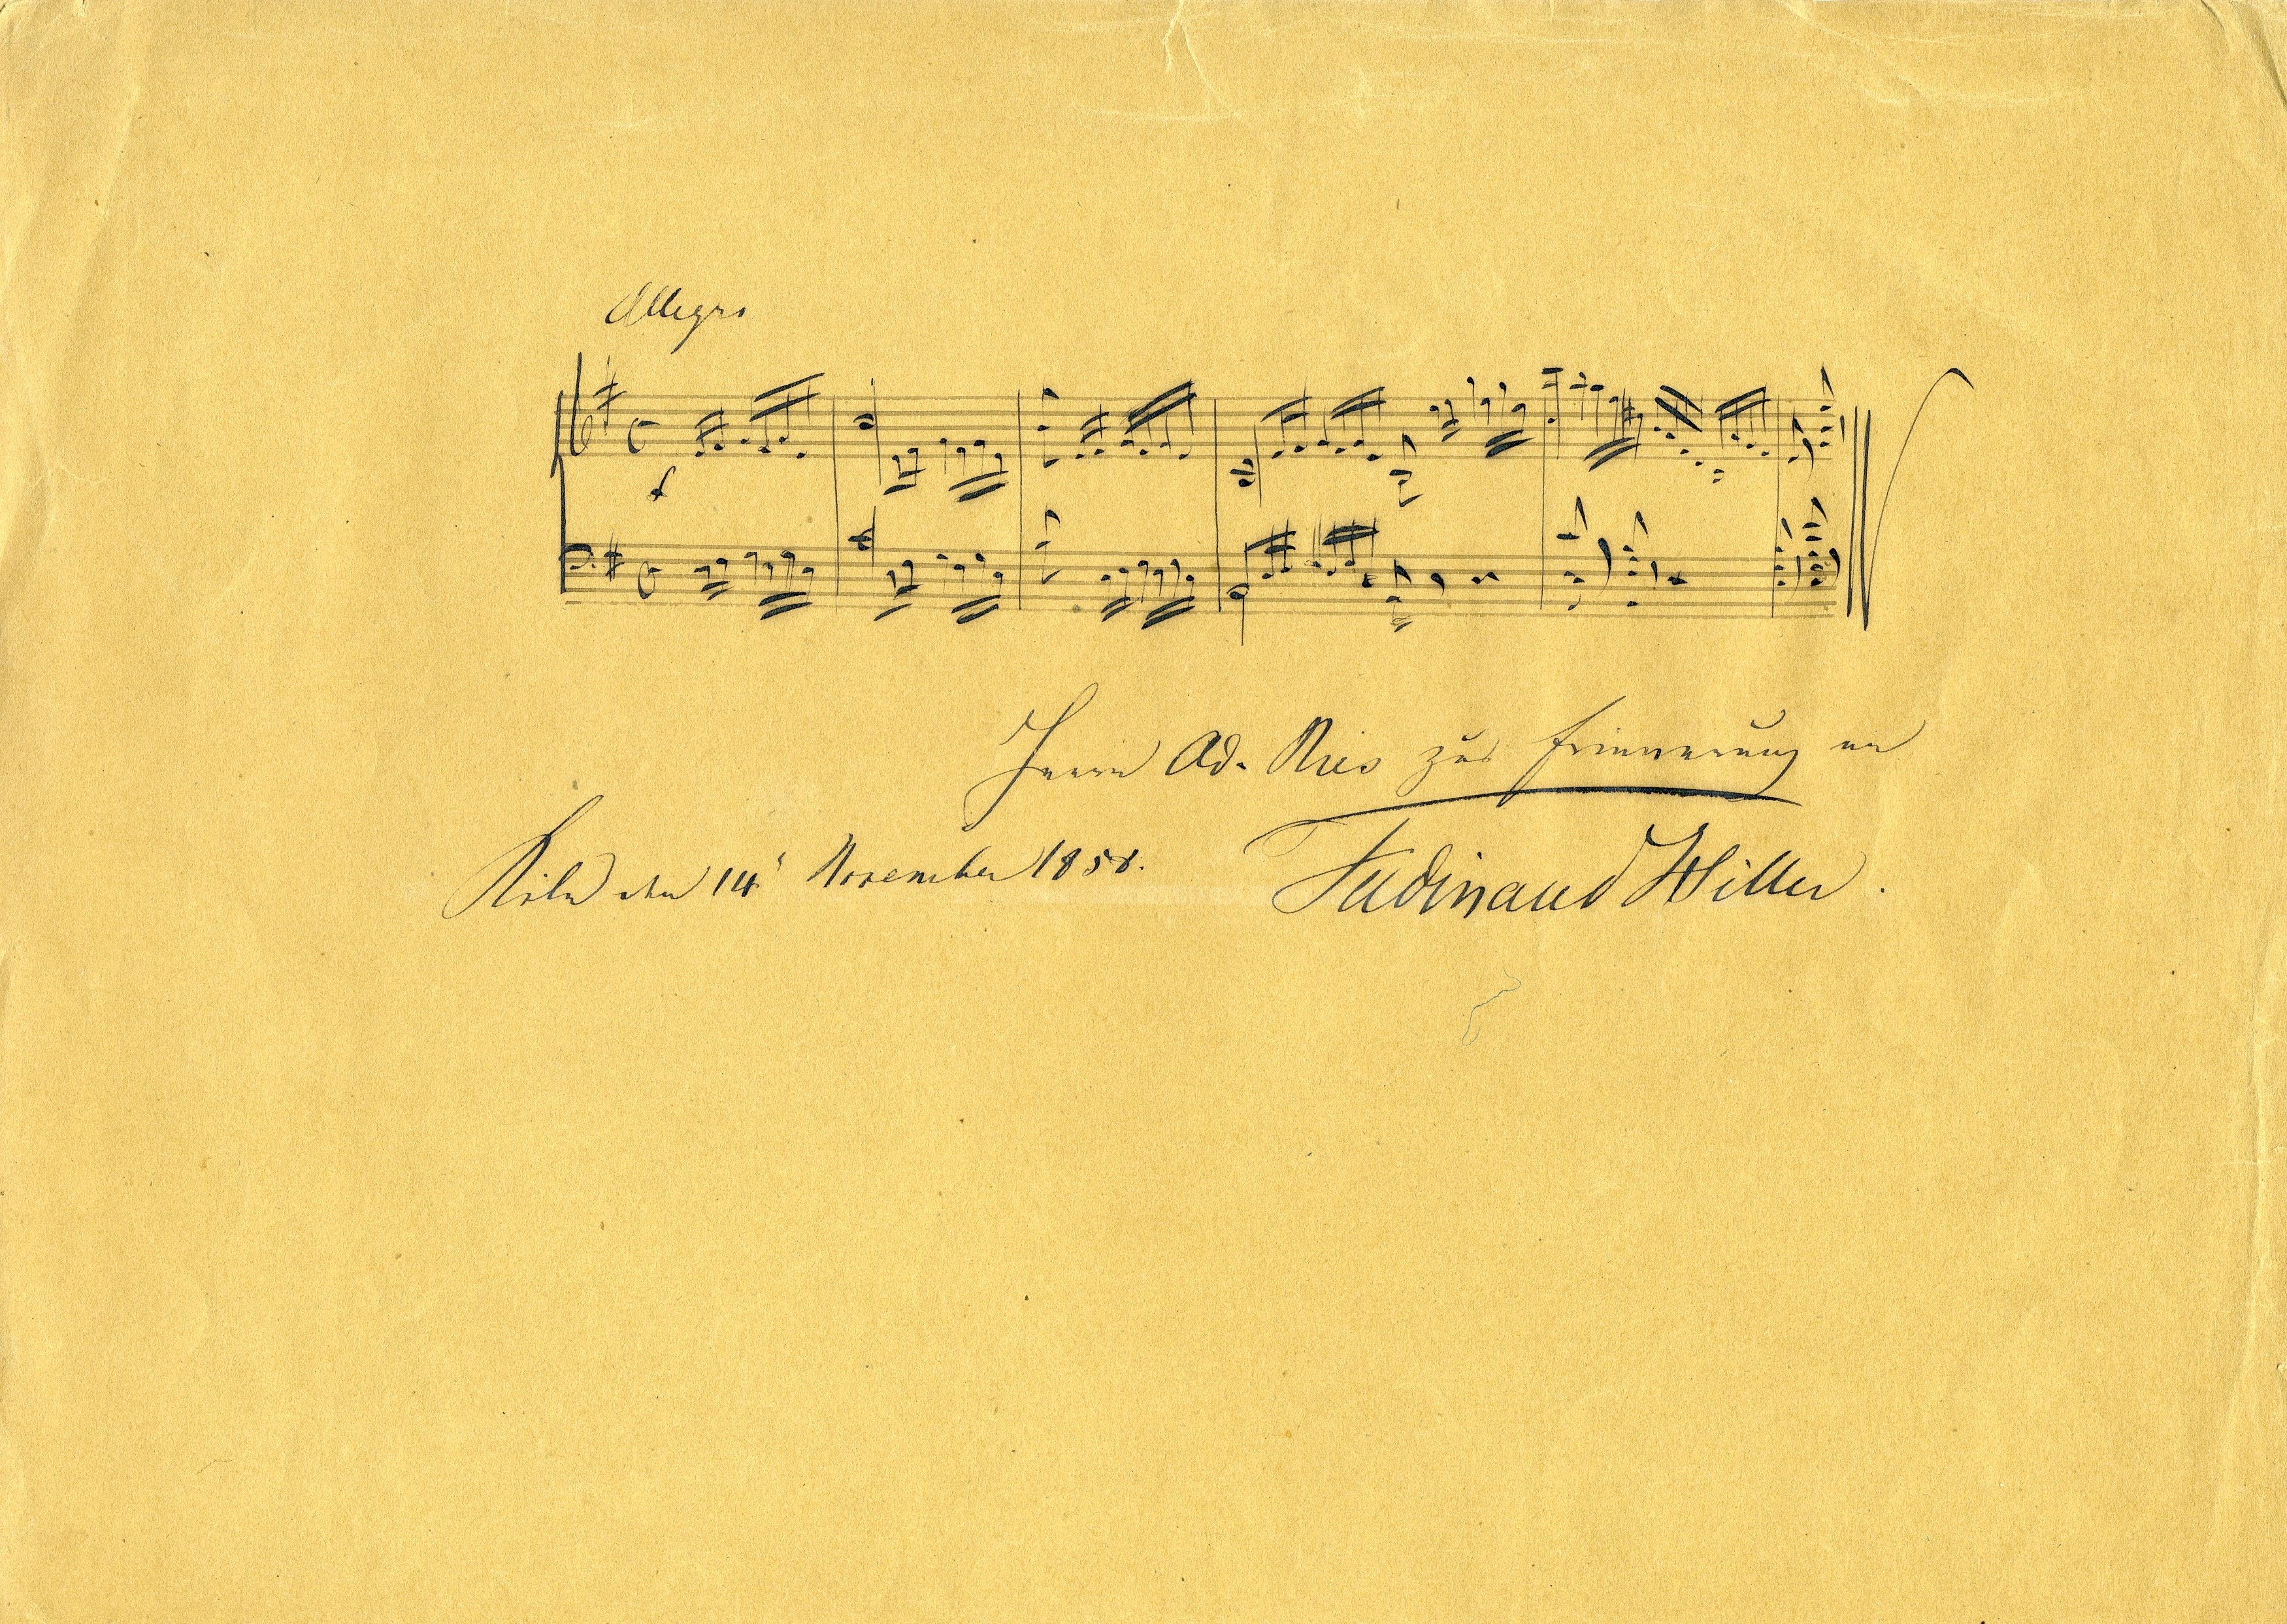 Allegro
f
Herrn Ad. Ries zur Erinnerung an
Köln den 14t November 1858. Ferdinand Hiller.